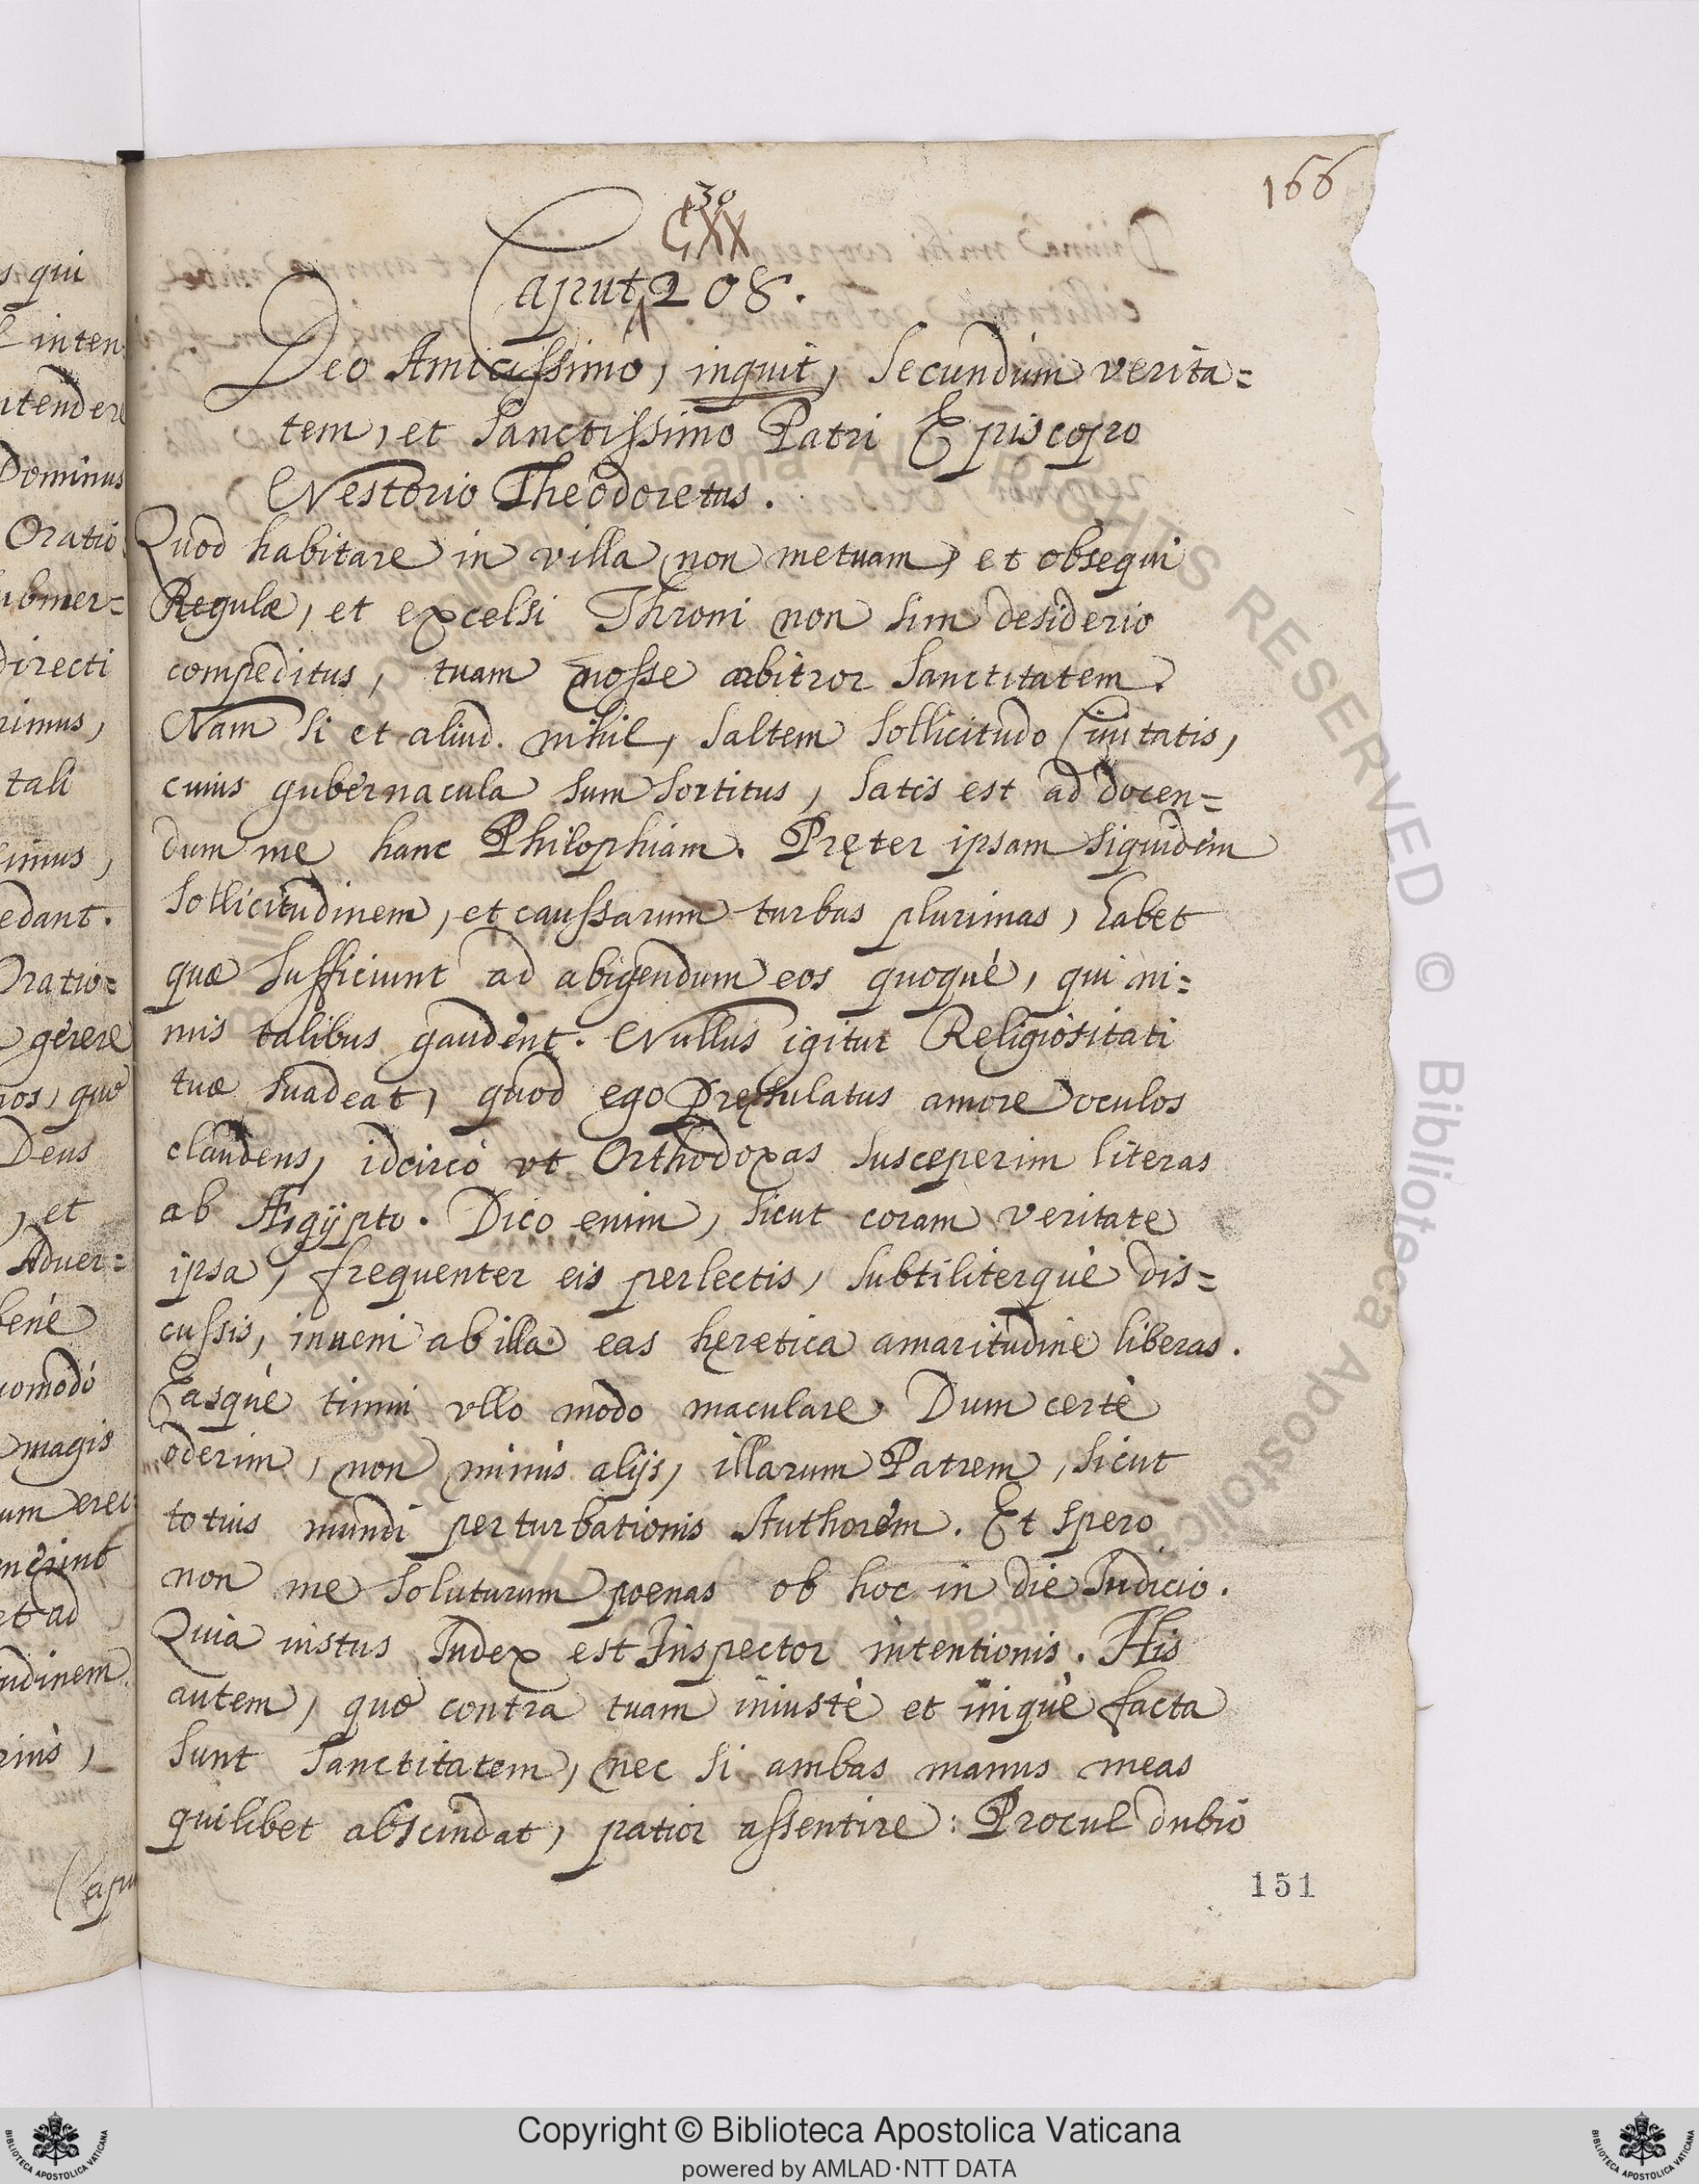 166
30
CXX
Caput 208.
Deo Amicissimo, inquit, secundum verita=
tem, et sanctissimo Patri Episcopo
Nestorio Theodoretus.
Quod habitare in villa non metuam, et obsequi
Regulæ, et excelsi Throni non sim desiderio
compeditus, tuam nosse arbitror sanctitatem.
Nam si et aliud. nihil, saltem sollicitudo Ciuitatis,
cuius gubernacula sum sortitus, satis est ad docen=
dum me hanc Philophiam. Pręter ipsam siquidem
sollicitudinem, et caussarum turbas plurimas, habet
quæ sufficiunt ad abigendum eos quoquè, qui ni=
mis talibus gaudent. Nullus igitur Religiositati
tuæ suadeat, quod ego pręsulatus amore oculos
claudens, idcircò vt Orthodoxas susceperim literas
ab Ægÿpto. Dico enim, sicut coram veritate
ipsa, frequenter eis perlectis, subtiliterquè dis=
cussis, inueni ab illa eas hęretica amaritudine liberas.
Easquè timui vllo modo maculare. Dum certè
oderim, non minùs alijs, illarum Patrem, sicut
totius mundi perturbationis Authorem. Et spero
non me soluturum poenas ob hoc in die Iudicio.
Quia iustus Iudex est Inspector intentionis. His
autem, quæ contra tuam iniustè et iniquè facta
sunt sanctitatem, nec si ambas manus meas
quilibet abscindat, patior assentire: Procul dubio
151
s qui
intendere
Dominus
Oratio
directi
rimus,
tali
simus,
edant.
Oratio=
gerere
Deus
, et
Aduer=
benè
magis
et ad
Copyright © Biblioteca Apostolica Vaticana
powered by AMLAD·NTT DATA